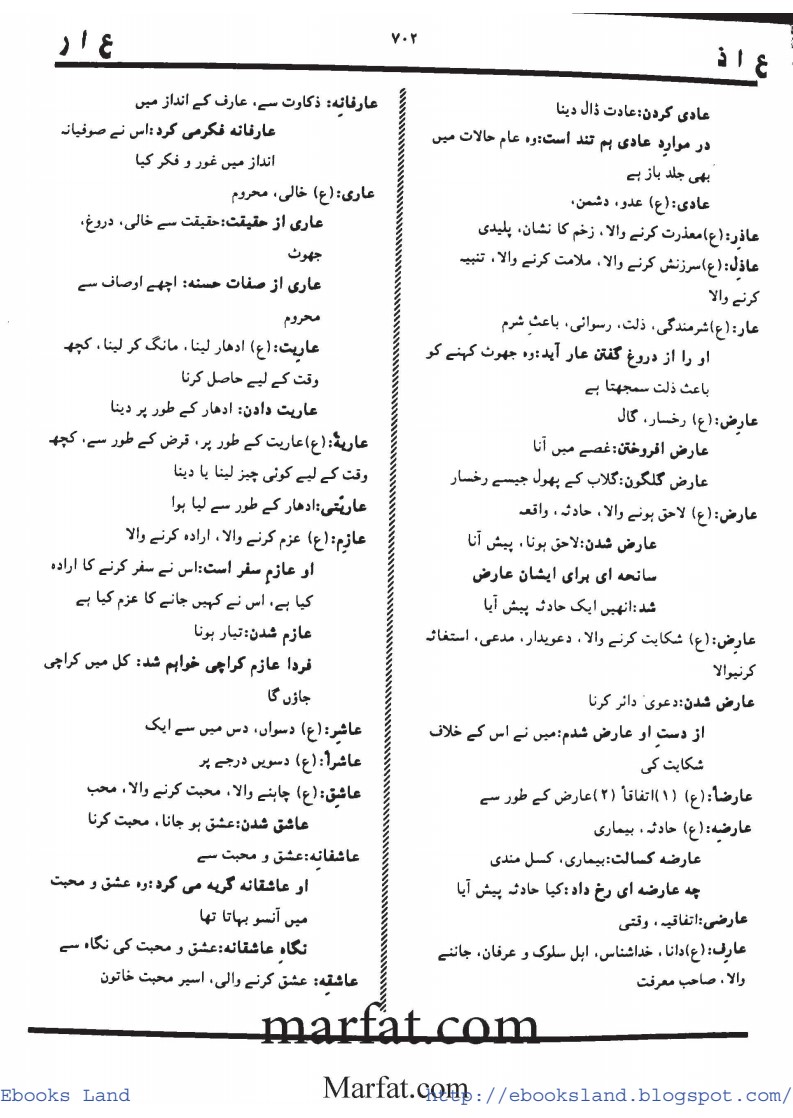 ع ا ذ
۷۰۲
ع ا ر
عادی کردن:عادت ڈال دینا
در مواردِ عادی ہم تند است:وہ عام حالات میں
بھی جلد باز ہے
عادی:(ع) عدو، دشمن،
عاذِر:(ع)معذرت کرنے والا، زخم کا نشان، پلیدی
عاذِل:(ع)سرزنش کرنے والا، ملامت کرنے والا، تنبیہ
کرنے والا
عار:(ع)شرمندگی، ذلت، رسوائی، باعثِ شرم
او را از دروغ گفتن عار آید:وہ جھوٹ کہنے کو
باعث ذلت سمجھتا ہے
عارِض:(ع) رخسار، گال
عارض افروختن:غصے میں آنا
عارض گلگون:گلاب کے پھول جیسے رخسار
عارِض:(ع) لاحق ہونے والا، حادثہ، واقعہ
عارض شدن:لاحق ہونا، پیش آنا
سانحہ ای برای ایشان عارض
شد:انھیں ایک حادثہ پیش آیا
عارِض:(ع) شکایت کرنے والا، دعویدار، مدعی، استغاثہ
کرنیوالا
عارض شدن:دعویٰ دائر کرنا
از دستِ او عارض شدم:میں نے اس کے خلاف
شکایت کی
عارضاً:(ع) (۱)اتفاقاً (۲)عارض کے طور سے
عارضِہ:(ع) حادثہ، بیماری
عارضہ کسالت:بیماری، کسل مندی
چہ عارضہ ای رخ داد:کیا حادثہ پیش آیا
عارضی:اتفاقیہ، وقتی
عارِف:(ع)دانا، خداشناس، اہل سلوک و عرفان، جاننے
والا، صاحب معرفت
عارفانِہ: ذکاوت سے، عارف کے انداز میں
عارفانہ فکرمی کرد:اس نے صوفیانہ
انداز میں غور و فکر کیا
عاری:(ع) خالی، محروم
عاری از حقیقت:حقیقت سے خالی، دروغ،
جھوٹ
عاری از صفات حسنہ: اچھے اوصاف سے
محروم
عاریت:(ع) ادھار لینا، مانگ کر لینا، کچھ
وقت کے لیے حاصل کرنا
عاریت دادن: ادھار کے طور پر دینا
عاریۃً:(ع)عاریت کے طور پر، قرض کے طور سے، کچھ
وقت کے لیے کوئی چیز لینا یا دینا
عاریّتی:ادھار کے طور سے لیا ہوا
عازِم:(ع) عزم کرنے والا، ارادہ کرنے والا
او عازمِ سفر است:اس نے سفر کرنے کا ارادہ
کیا ہے، اس نے کہیں جانے کا عزم کیا ہے
عازم شدن:تیار ہونا
فردا عازم کراچی خواہم شد: کل میں کراچی
جاؤں گا
عاشِر:(ع) دسواں، دس میں سے ایک
عاشراً:(ع) دسویں درجے پر
عاشِق:(ع) چاہنے والا، محبت کرنے والا، محب
عاشق شدن:عشق ہو جانا، محبت کرنا
عاشقانِہ:عشق و محبت سے
او عاشقانہ گریہ می کرد:وہ عشق و محبت
میں آنسو بہاتا تھا
نگاہِ عاشقانہ:عشق و محبت کی نگاہ سے
عاشقِہ: عشق کرنے والی، اسیر محبت خاتون
marfat.com
Marfat.com
Ebooks Land
http://ebooksland.blogspot.com/